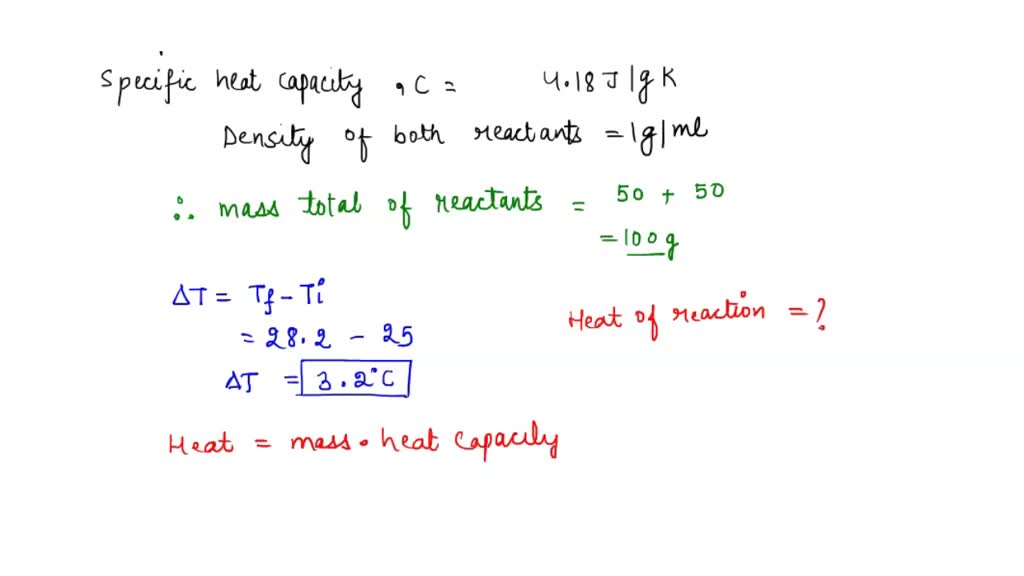 Specific heat capacity , C = 4.18 J|g K
Density of both reactants = 1g|ml
∴ mass total of reactants = 50 + 50
= 100g
ΔT = Tf - Ti
= 28.2 - 25
ΔT = 3.2°C
Heat of reaction = ?
Heat = mass . heat capacity